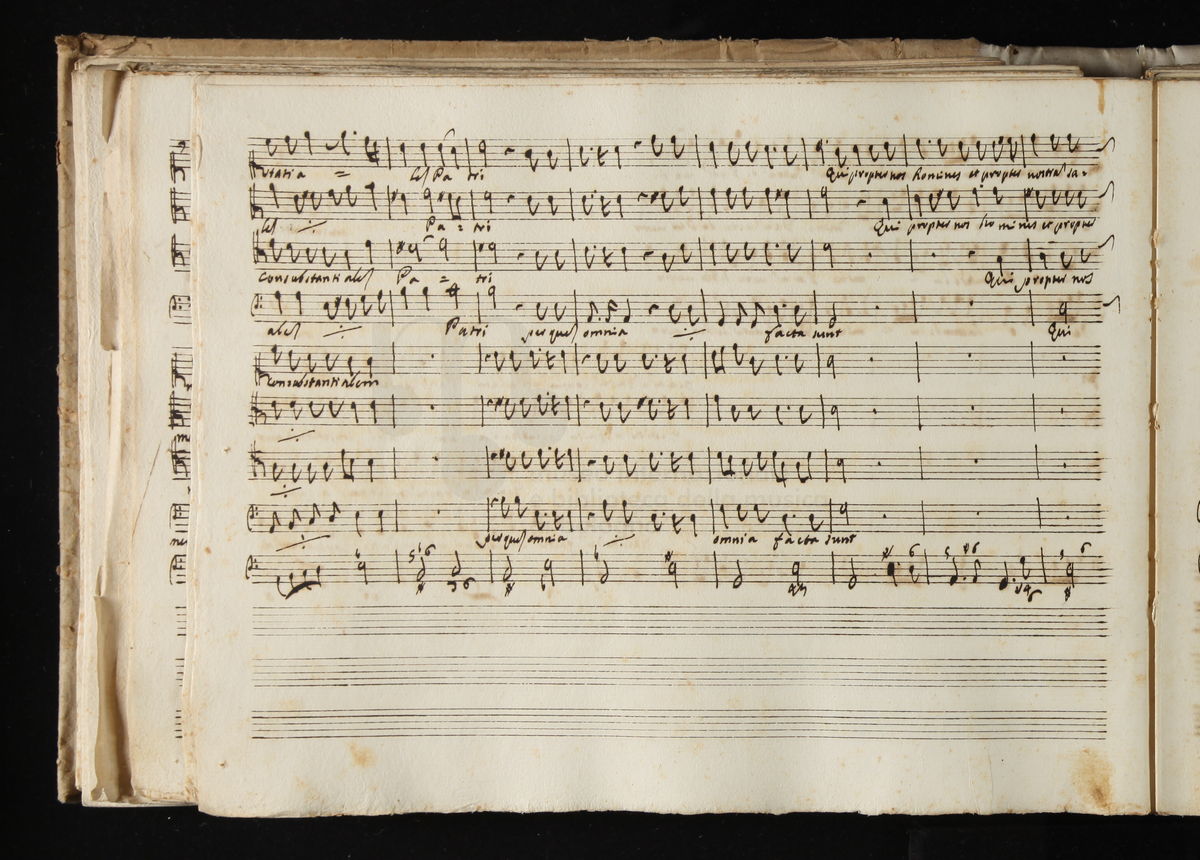 ntatia = les Pa tri Qui propter nos homines et propter nostra sa=
les Pa = tri Qui propter nos ho mines et propter
Consubstantiales Pa = tri Qui propter nos
ales Patri per ques omnia facta sunt Qui
Consubstantialem
per ques omnia omnia facta sunt
e biblioteca della musica